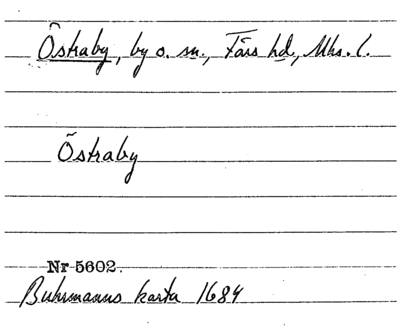 Östraby, by o. sn., Färs hd, Mhs. l.
Östraby
Nr 5602.
Buhrmanns karta 1684